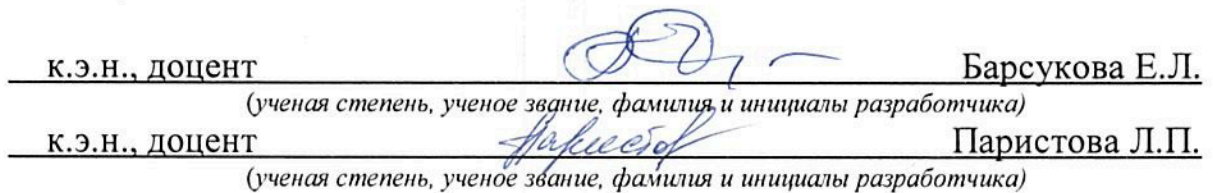 к.э.н., доцент Барсукова Е.Л.
(ученая степень, ученое звание, фамилия и инициалы разработчика)
к.э.н., доцент Паристова Л.П.
(ученая степень, ученое звание, фамилия и инициалы разработчика)